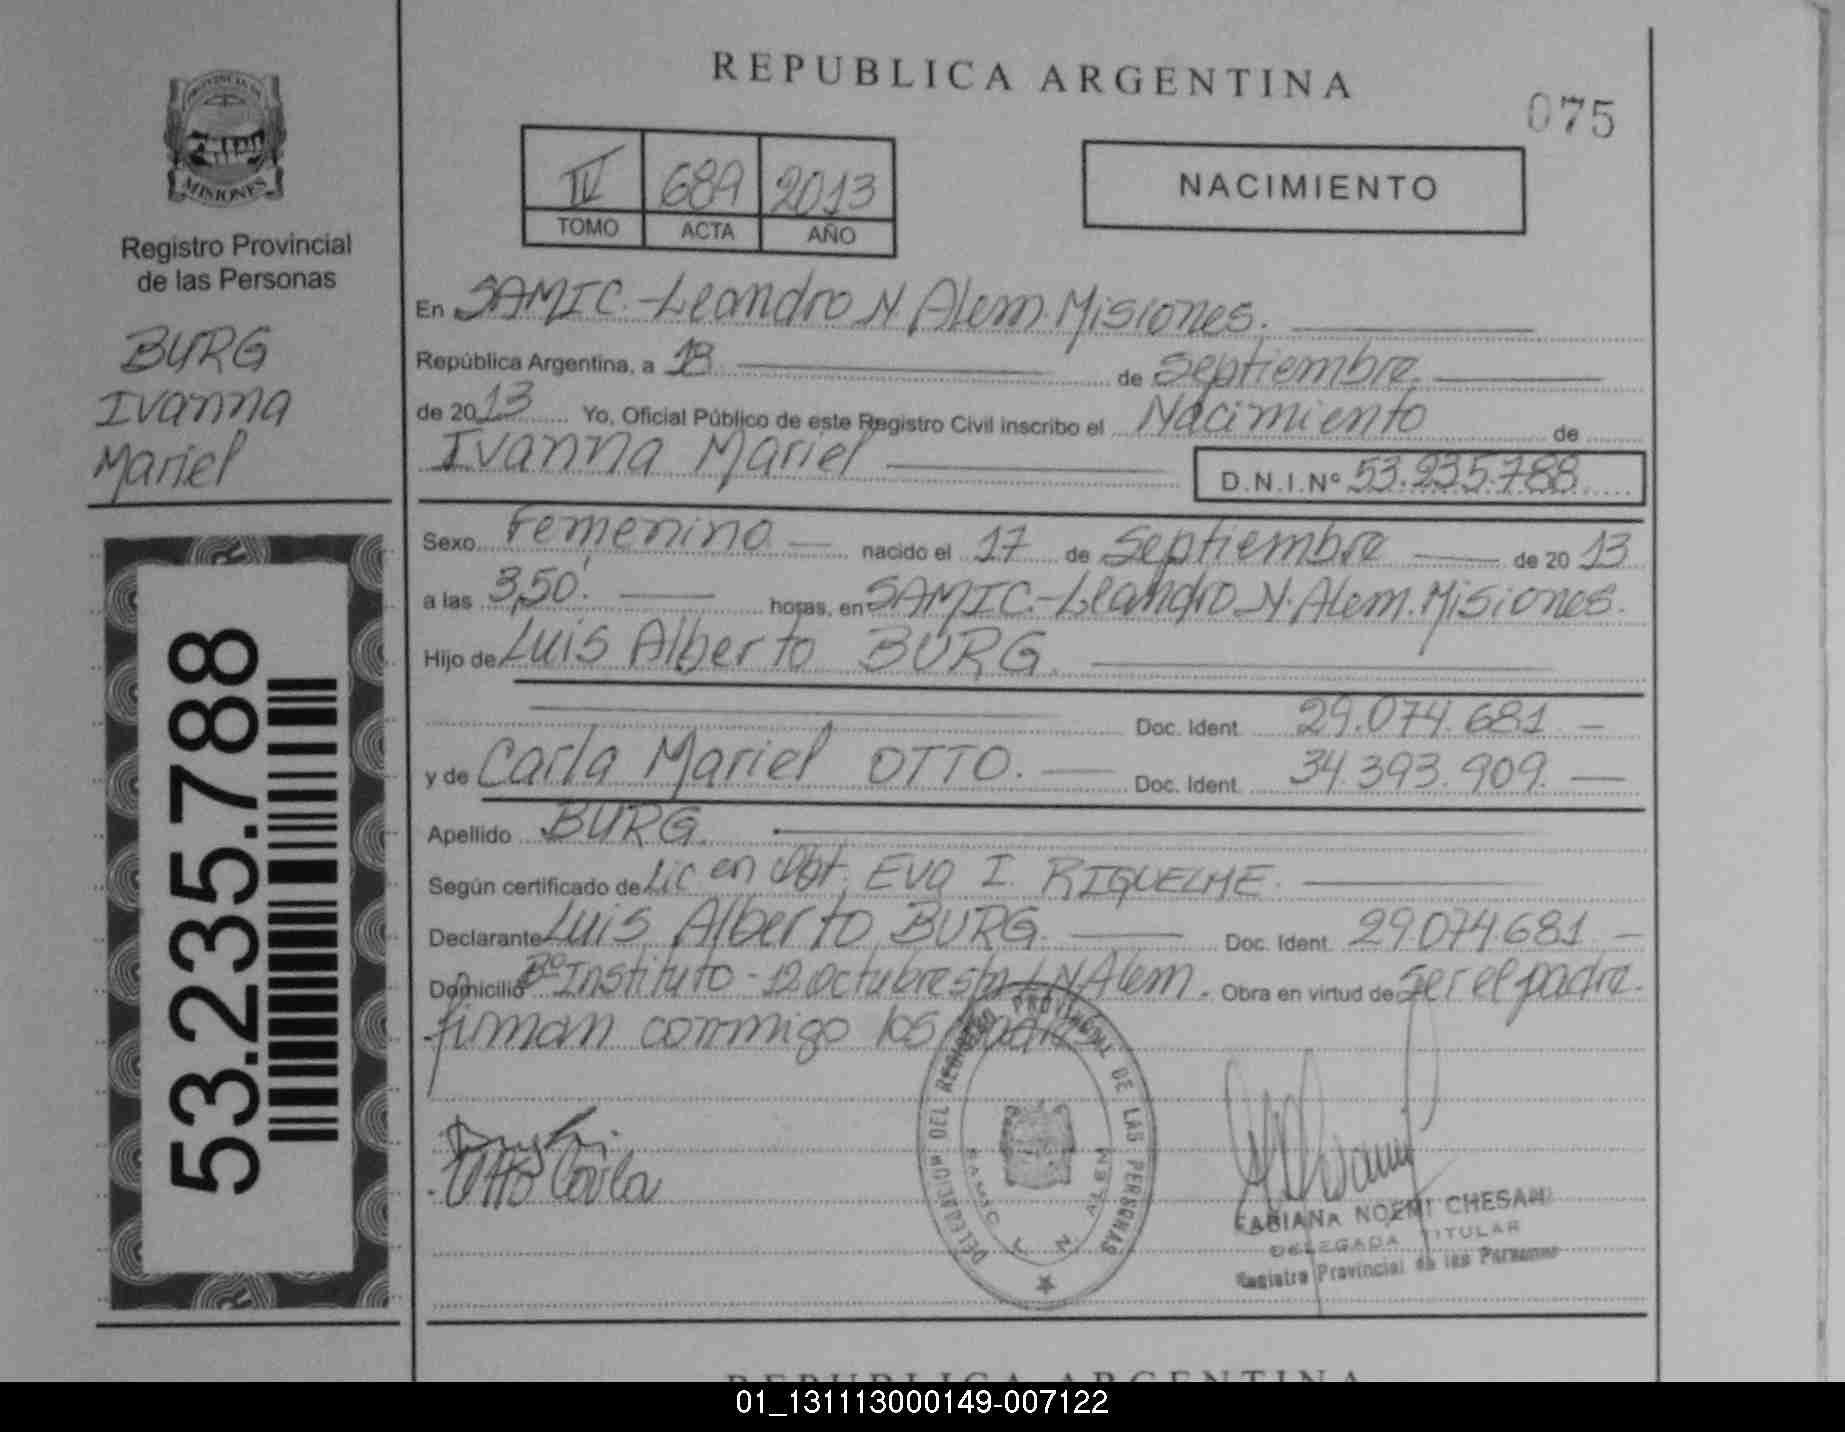 REPUBLICA ARGENTINA
075
PROVINCIA DE
MISIONES
Registro Provincial
de las Personas
BURG
Ivanna
Mariel
53.235.788
IV 689 2013
TOMO ACTA AÑO
NACIMIENTO
En SAMIC.-Leandro N. Alem. Misiones.
República Argentina, a 18 de septiembre
de 2013 Yo, Oficial Público de este Registro Civil inscribo el Nacimiento de
Ivanna Mariel D.N.I.Nº 53.235.788
Sexo Femenino nacido el 17 de Septiembre de 2013
a las 3,50' horas, en SAMIC.-Leandro N. Alem. Misiones.
Hijo de Luis Alberto BURG.
Doc. Ident. 29.074.681
y de Carla Mariel OTTO. Doc. Ident. 34.393.909.
Apellido BURG.
Según certificado de Lic en Obt. Eva I. RIQUELME.
Declarante Luis Alberto BURG. Doc. Ident. 29.074.681
Domicilio Bº Instituto - 12 Octubre s/n L N Alem. Obra en virtud de ser el padre.
firman conmigo los padres
Otto Carla
DELEGACION DEL REGISTRO PROVINCIAL DE LAS PERSONAS
SAMIC L. N. ALEM
FABIANA NOEMI CHESANI
DELEGADA TITULAR
Registro Provincial de las Personas
REPUBLICA ARGENTINA
01_131113000149-007122